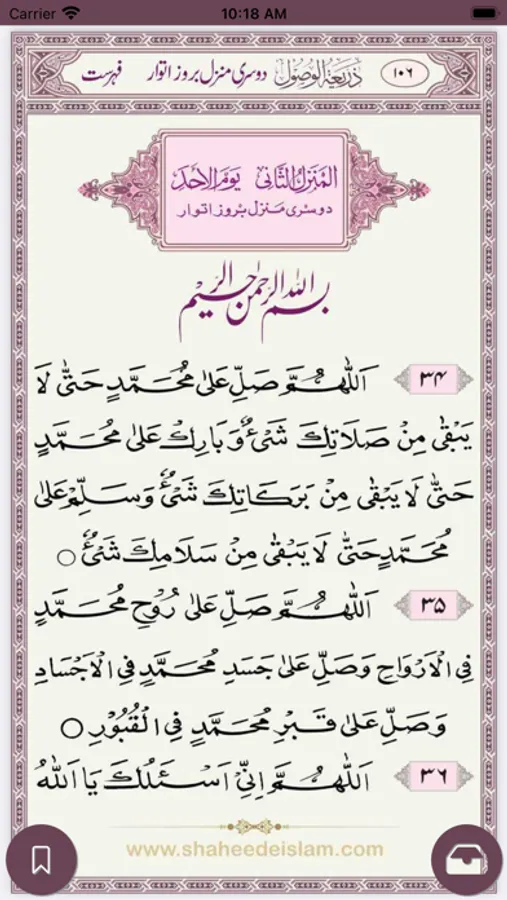 Carrier 10:18 AM
۱۰۶ ذریعۃ الوصول دوسری منزل بروز اتوار فہرست
اَلْمَنْزِلُ الثَّانِیْ یَوْمُ الْاَحَدْ
دوسری منزل بروز اتوار
بسم اللہ الرحمن الرحیم
۳۴ اَللّٰھُمَّ صَلِّ عَلٰی مُحَمَّدٍ حَتّٰی لَا
یَبْقٰی مِنْ صَلَاتِكَ شَیْءٌ وَّبَارِكْ عَلٰی مُحَمَّدٍ
حَتّٰی لَا یَبْقٰی مِنْ بَرَکَاتِكَ شَیْءٌ وَّسَلِّمْ عَلٰی
مُحَمَّدٍ حَتّٰی لَا یَبْقٰی مِنْ سَلَامِكَ شَیْءٌ ○
۳۵ اَللّٰھُمَّ صَلِّ عَلٰی رُوْحِ مُحَمَّدٍ
فِی الْاَرْوَاحِ وَصَلِّ عَلٰی جَسَدِ مُحَمَّدٍ فِی الْاَجْسَادِ
وَصَلِّ عَلٰی قَبْرِ مُحَمَّدٍ فِی الْقُبُوْرِ ○
۳۶ اَللّٰھُمَّ اِنِّیْ اَسْئَلُكَ یَا اَللّٰهُ
www.shaheedeislam.com